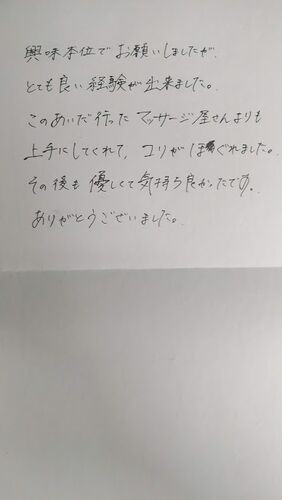 興味本位でお願いしましたが、
とても良い経験が出来ました。
このあいだ行ったマッサージ屋さんよりも
上手にしてくれて、コリがほぐれました。
その後も優しくて気持ち良かったです。
ありがとうございました。